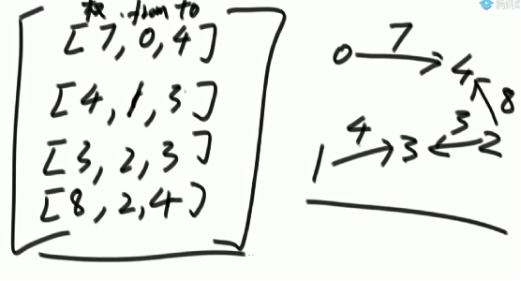 权 from to
[7, 0, 4]
[4, 1, 3]
[3, 2, 3]
[8, 2, 4]
0 7 4
8
1 4 3 3 2